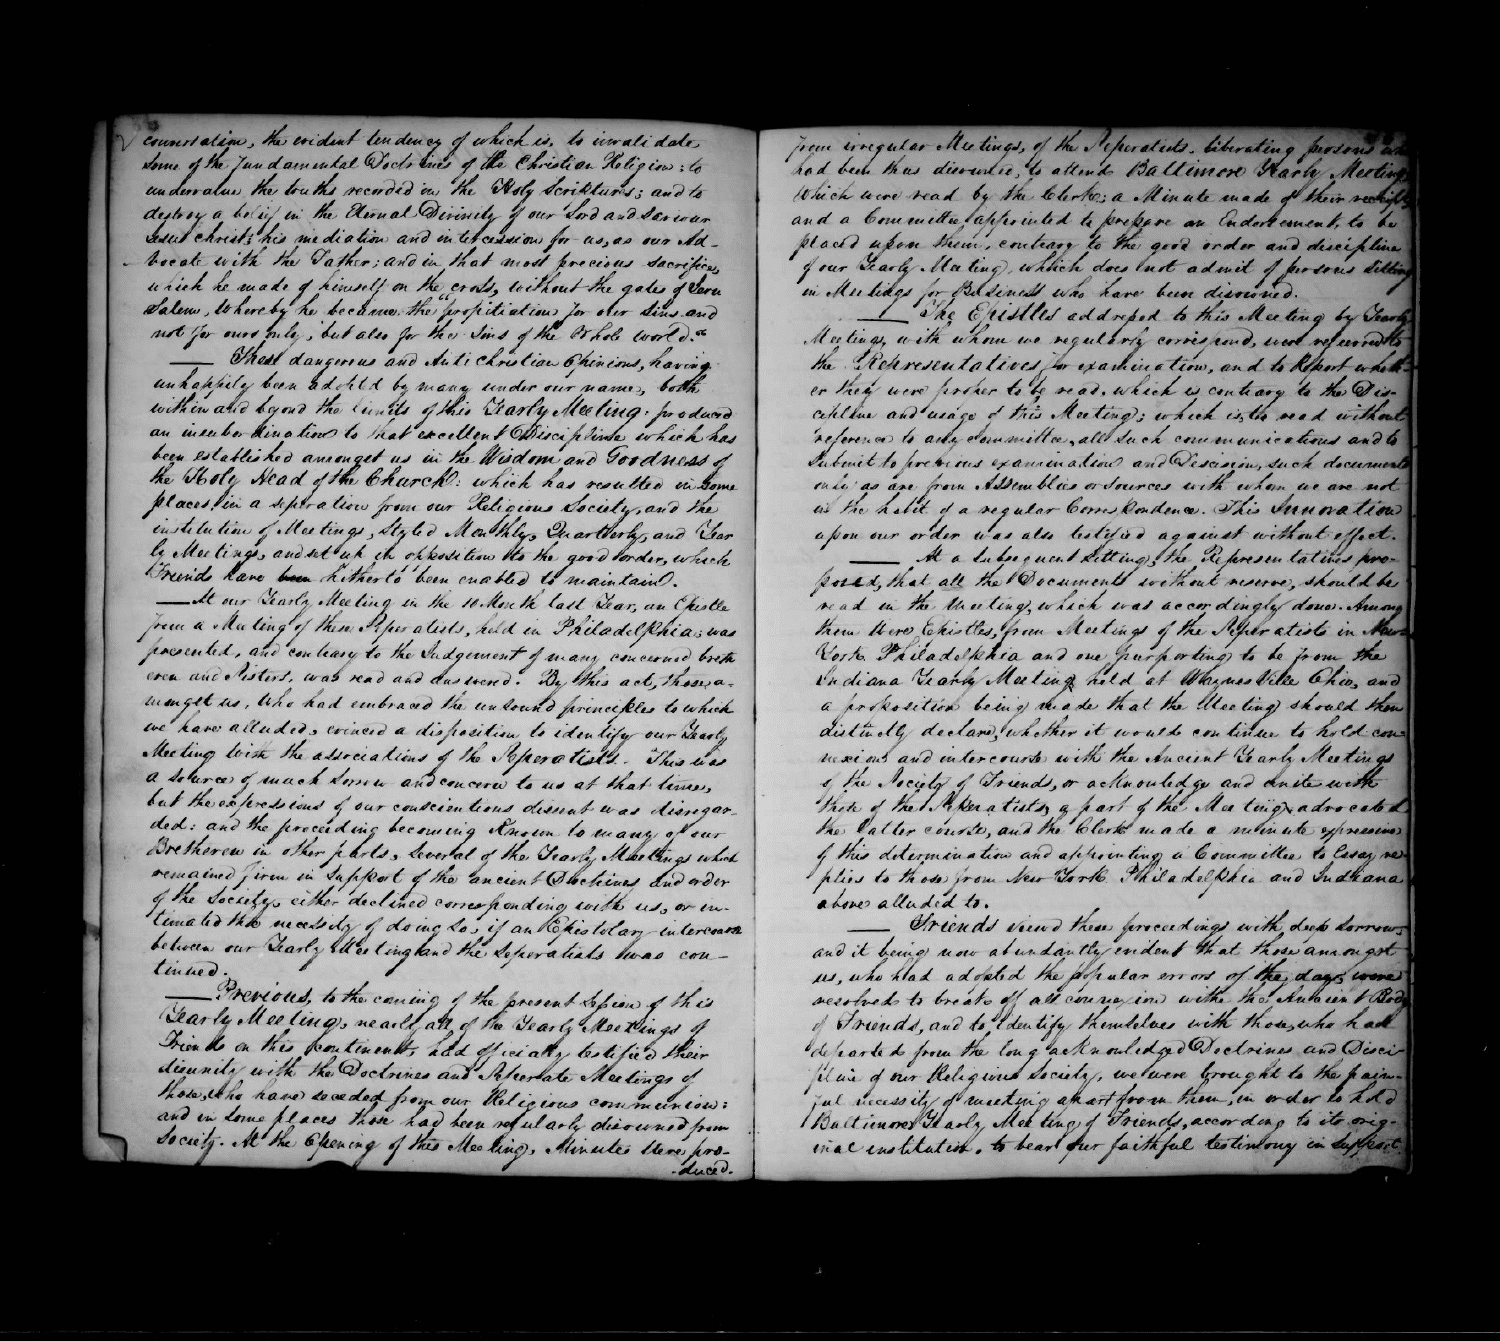 conversation, the evident tendency of which is, to invalidate
some of the fundamental Doctrines of the Christian Religion; to
undervalue the truths recorded in the Holy Scriptures; and to
destroy a belief in the Eternal Divinity of our Lord and Saviour
Jesus Christ; his mediation and intercession for us, as our Ad-
vocate with the Father; and in that most precious sacrifice,
which he made of himself on the cross, without the gates of Jeru
salem, Whereby he became the "propitiation for our sins and
not for ours only, but also for the sins of the Whole world."
These dangerous and Antichristian Opinions, having
unhappily been adopted by many under our name, both
within and beyond the limits of this Yearly Meeting. produced
an insubordination to that excellent Discipline which has
been established amongst us in the Wisdom and Goodness of
the Holy Head of the Church: which has resulted in some
places, in a seperation from our Religious Society, and the
institution of Meetings, styled Monthly, Quarterly, and Year
ly Meetings, and set up in opposition to the good order, which
Friends have been hitherto been enabled to maintain.
At our Yearly Meeting in the 10 Month last Year, an Epistle
from a Meeting of these Seperatists, held in Philadelphia, was
presented, and contrary to the Judgement of many concerned breth
eren and Sisters, was read and answered. By this act, those a-
mongst us, who had embraced the unsound principles to which
we have alluded, evinced a disposition to identify our Yearly
Meeting with the associations of the Seperatists. This was
a source of much sorrow and concern to us at that time,
but the expressions of our conscientious dissent was disregar-
ded: and the proceeding becoming Known to many of our
Bretheren in other parts, several of the Yearly Meetings which
remained firm in support of the ancient Doctrines and order
of the Society, either declined corresponding with us, or in-
timated the necessity of doing so, if an Epistolary intercourse
between our Yearly Meeting and the Seperatists was con-
tinued.
Previous, to the coming of the present Session of this
Yearly Meeting, nearly all of the Yearly Meetings of
Friends on this continent, had officially testified their
disunity with the Doctrines and Seperate Meetings of
those, who have seceded from our Religious communion:
and in some places those had been regularly disowned from
Society. At the Opening of this Meeting, Minutes were pro-
duced.
from irregular Meetings, of the Seperatists. liberating persons who
had been thus disowned, to attend Baltimore Yearly Meeting,
Which were read by the Clerk; a Minute made of their receipt,
and a Committee appointed to prepare an Endorsement, to be
placed upon them, contrary to the good order and discipline
of our Yearly Meeting, which does not admit of persons Sitting
in Meetings for Business who have been disowned.
The Epistles addressed to this Meeting by Yearly
Meetings, with whom we regularly correspond, were referred to
the Representatives for examination, and to Report wheth-
er they were proper to be read, which is contrary to the Dis-
cipline and usage of this Meeting; which is, to read without
reference to any committee, all such communications and to
Submit to previous examination and Decision, such documents
only as are from Assemblies or Sources with whom we are not
in the habit of a regular Correspondence. This Innovation
upon our order was also testified against without effect.
At a subsequent sitting, the Representatives pro-
posed, that all the Documents without reserve, should be
read in the Meeting, which was accordingly done. Among
them Were Epistles, from Meetings of the Seperatists in New-
York Philadelphia and one purporting to be from the
Indiana Yearly Meeting held at WaynesVille Ohio, and
a proposition being made that the Meeting should then
distinctly declare, whether it would continue to hold con-
nexion and intercourse with the Ancient Yearly Meetings
of the Society of Friends, or acknowledge and unite with
those of the Seperatists, a part of the Meeting advocated
the latter course, and the Clerk made a minute expressive
of this determination and appointing a Committee to Essay re-
plies to those from New York Philadelphia and Indiana
above alluded to.
Friends viewd these proceedings with deep sorrow,
and it being now abundantly evident that those amongst
us, who had adopted the popular errors of the day, were
resolved to break off all connexion with the Ancient Body
of Friends, and to Identify themselves with those, who had
departed from the long acknowledged Doctrines and Disci-
pline of our Religious Society, we were brought to the pain-
ful necessity of meeting apart from them, in order to hold
Baltimore Yearly Meeting of Friends, according to its orig-
inal institution, to bear our faithful testimony in support